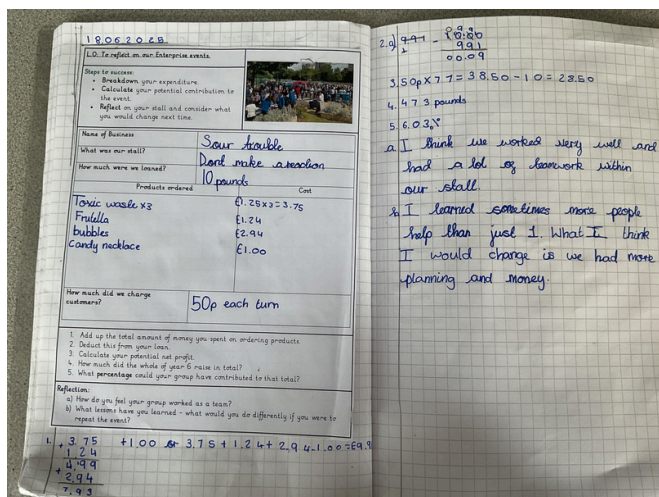 18.06.2025
L.O: To reflect on our Enterprise events.
Steps to success:
• Breakdown your expenditure.
• Calculate your potential contribution to
the event.
• Reflect on your stall and consider what
you would change next time.
Name of Business
Sour trouble
What was our stall?
Dont make a reaction
How much were we loaned?
10 pounds
Products ordered
Cost
Toxic waste x3
£1.25x3=3.75
Frutella
£1.24
bubbles
£2.94
Candy necklace
£1.00
How much did we charge
customers?
50p each turn
1. Add up the total amount of money you spent on ordering products.
2. Deduct this from your loan.
3. Calculate your potential net profit.
4. How much did the whole of year 6 raise in total?
5. What percentage could your group have contributed to that total?
Reflection:
a) How do you feel your group worked as a team?
b) What lessons have you learned - what would you do differently if you were to
repeat the event?
1. + 3.75 +1.00 or 3.75+1.24+2.94-1.00=£9.9
1.24
4.99
+ 2.94
7.93
2.a)
10.00
991
00.09
3. 50p x 77=38.50-10=28.50
4. 473 pounds
5. 6.03%
a. I think we worked very well and
had a lot of teamwork within
our stall.
b. I learned sometimes more people
help than just 1. What I think
I would change is we had more
planning and money.